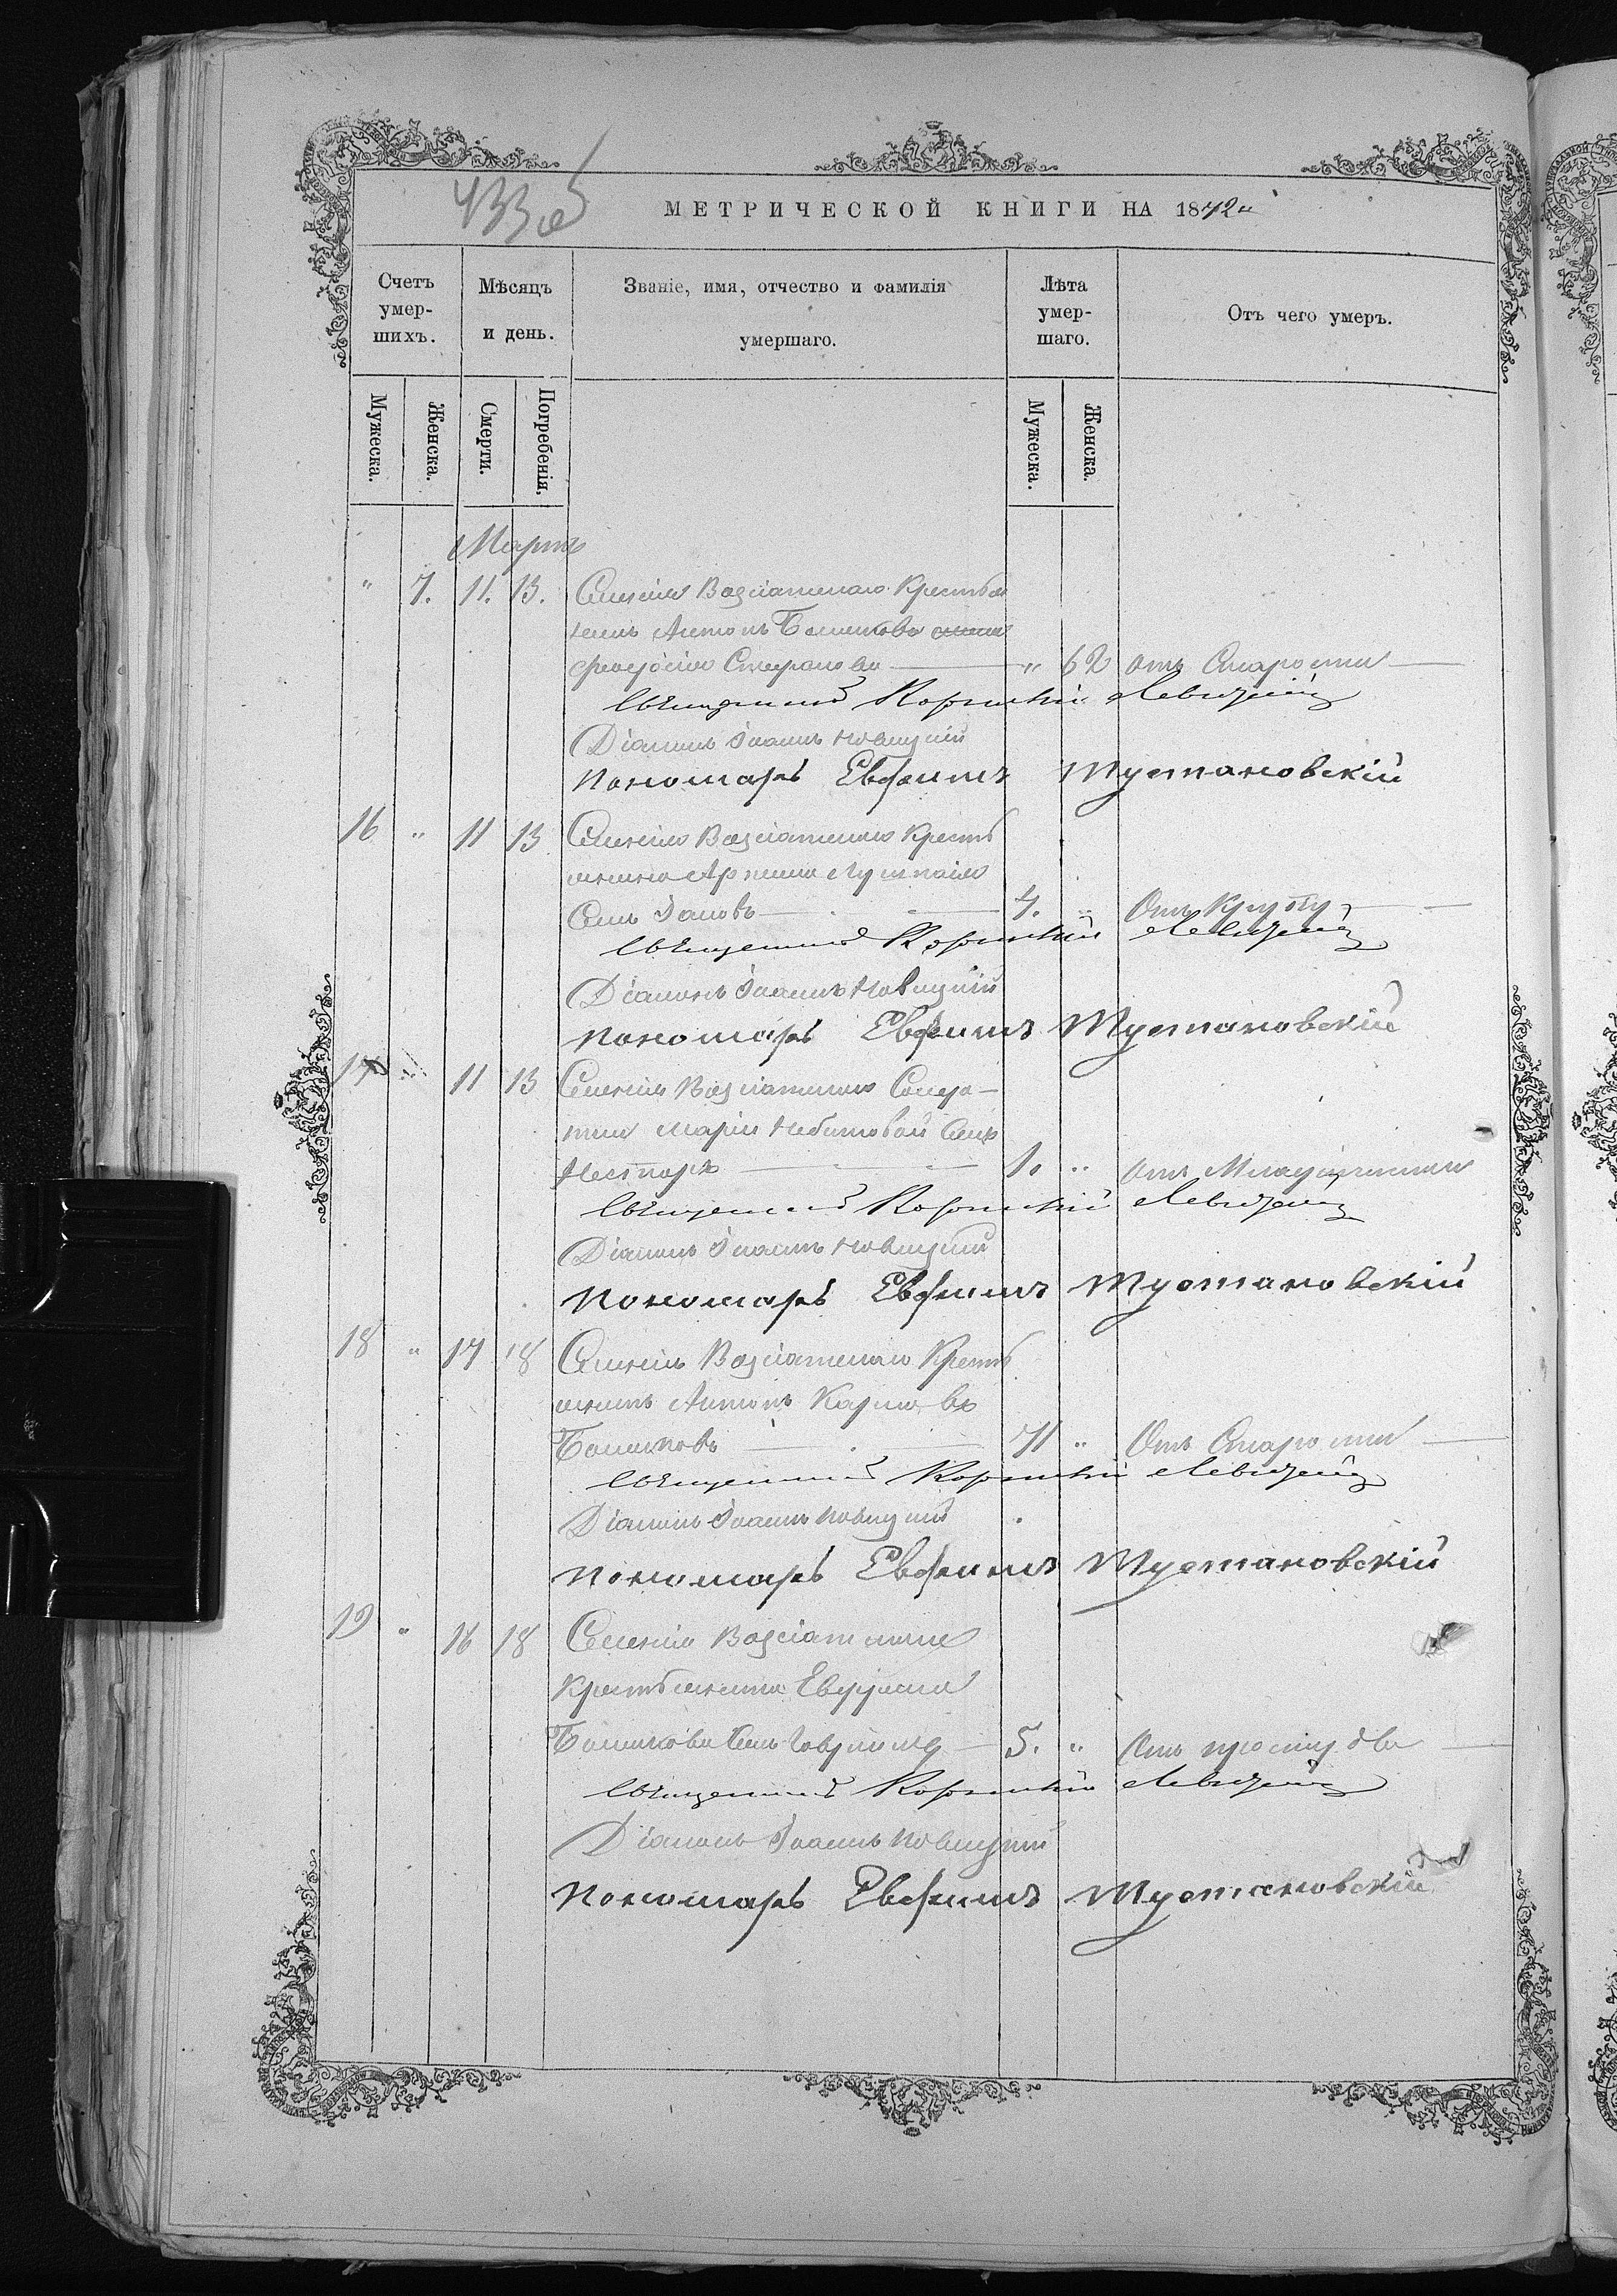 433 об
МЕТРИЧЕСКОЙ КНИГИ НА 1872 й
Счетъ умер-шихъ.
Мѣсяцъ и день.
Званіе, имя, отчество и фамилія умершаго.
Лѣта умер-шаго.
Отъ чего умеръ.
Мужеска.
Женска.
Смерти.
Погребенія.
Мужеска.
Женска.
Мартъ
" 7. 11. 13. Селенія Крестья
Антонъ
Стефанова " 62 отъ Старости
Священникъ Корнилій Левицкій
Діаконъ Іоаннъ Новицкій
Пономарь Евфимъ Тустановскій
16 " 11 13 Селенія Кресть
янина
Сынъ Іаковъ 4. " Отъ Крупу
Священникъ Корнилій Левицкій
Діаконъ Іоаннъ Новицкій
Пономарь Евфимъ Тустановскій
17 " 11 13 Селенія Солда-
тки Маріи Сынъ
Несторъ 1. " отъ
Священникъ Корнилій Левицкій
Діаконъ Іоаннъ Новицкій
Пономарь Евфимъ Тустановскій
18 " 17 18 Селенія Кресть
янинъ Антонъ Карповъ
71 " Отъ Старости
Священникъ Корнилій Левицкій
Діаконъ Іоаннъ Новицкій
Пономарь Евфимъ Тустановскій
19 " 16 18 Селенія
Крестьянина
Сынъ 5. " Отъ простудва
Священникъ Корнилій Левицкій
Діаконъ Іоаннъ Новицкій
Пономарь Евфимъ Тустановскій